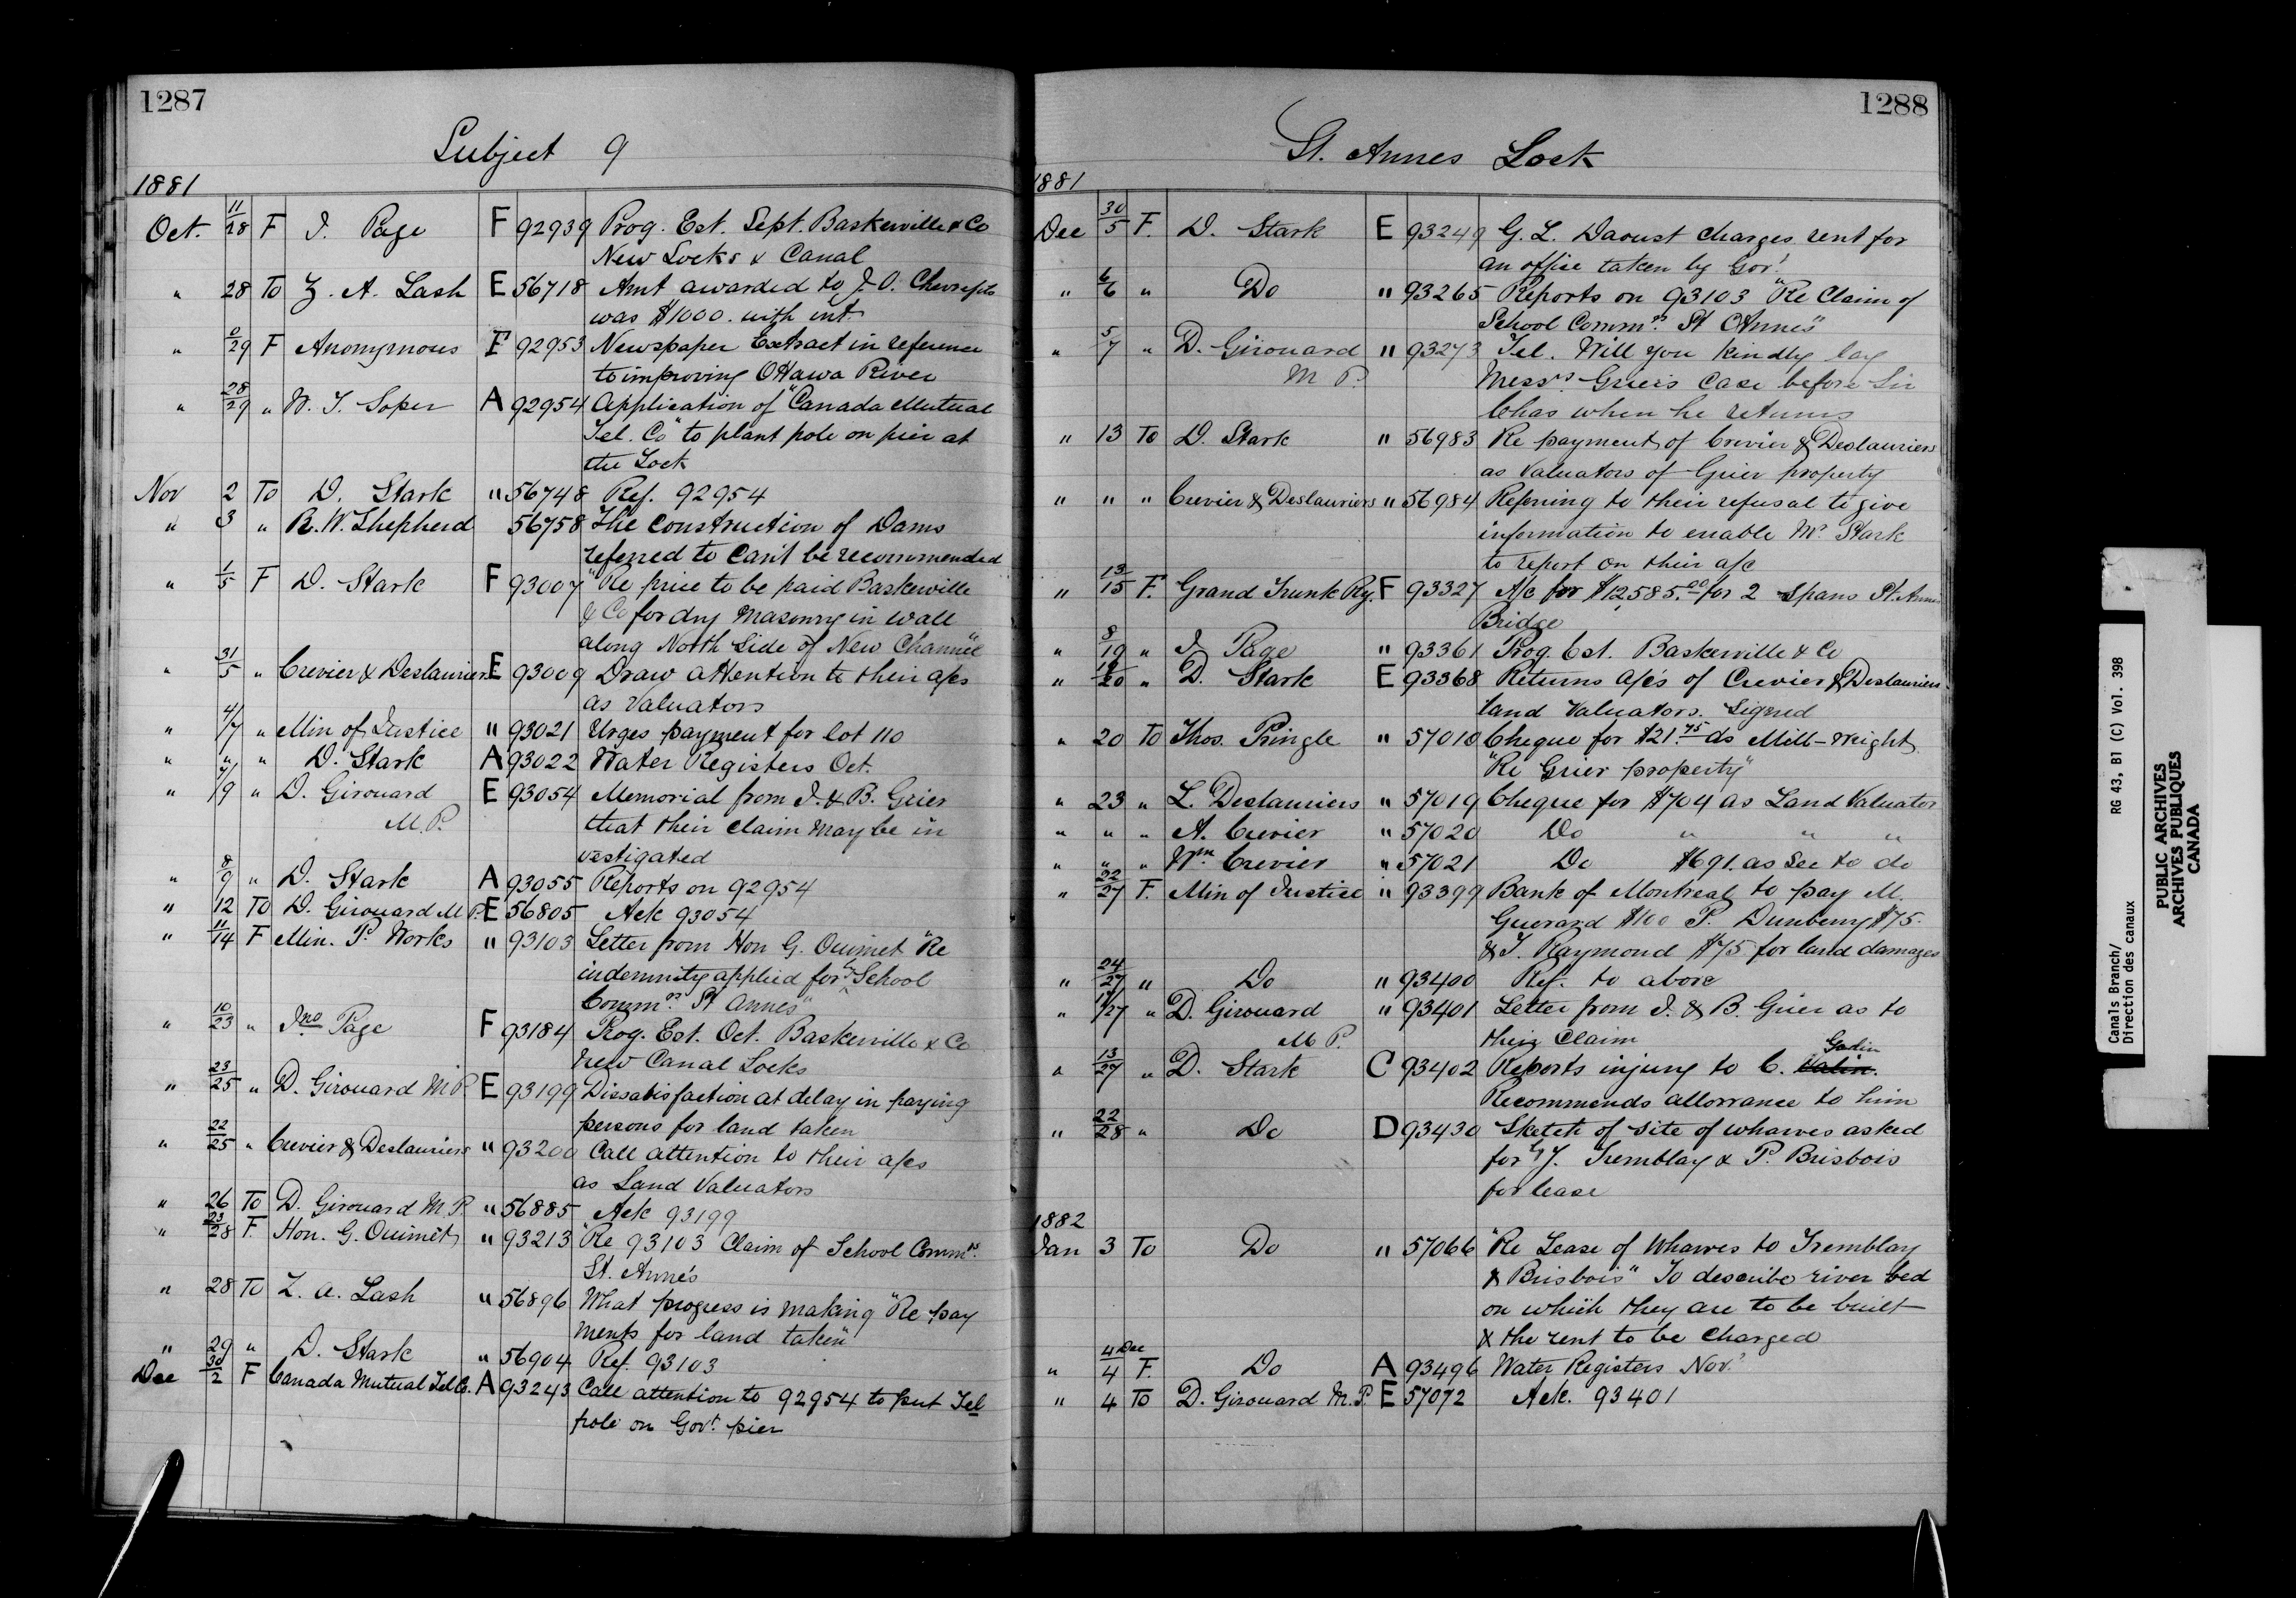 1287
Subject 9
1881
Oct. 11/28 F J. Page F 92939 Prog. Est. Sept. Baskerville & Co
New Locks & Canal
" 28 To Z. A. Lash E 56718 Amt awarded to J. O.
was $1000. with int.
" 0/29 F Anonymous E 92953 Newspaper Extract in reference
to improving Ottawa River
" 28/29 " W. J. Soper A 92954 Application of "Canada Mutual
Tel. Co" to plant pole on pier at
the Lock
Nov 2 To D. Stark " 56748 Ref. 92954
" 3 " R. W. Shepherd 56758 The Construction of Dams
referred to Can't be recommended
" 1/5 F D. Stark F 93007 "Re price to be paid Baskerville
& Co for dry Masonry in wall
along North Side of New Channel"
" 31/5 " Crevier & Deslauriers E 93009 Draw attention to their a/cs
as Valuators
" 4/7 " Min of Justice " 93021 Urges payment for lot 110
" "/" " D. Stark A 93022 Water Registers Oct.
" 7/9 " D. Girouard E 93054 Memorial from J. & B. Grier
M.P. that their claim may be in
vestigated
" 8/9 " D. Stark A 93055 Reports on 92954
" 12 To D. Girouard M.P. E 56805 Ack 93054
" 11/14 F Min. P. Works " 93103 Letter from Hon G. Ouimet "Re
indemnity applied for by School
Commrs. St Annes"
" 10/23 " Jno Page F 93184 Prog. Est. Oct. Baskerville & Co
New Canal Locks
" 23/25 " D. Girouard M.P. E 93199 Dissatisfaction at delay in paying
persons for land taken
" 22/25 " Crevier & Deslauriers " 93200 Call attention to their a/cs
as Land Valuators
" 26 To D. Girouard M.P. " 56885 Ack 93199
" 23/28 F. Hon. G. Ouimet " 93213 "Re 93103 Claim of School Commrs.
St. Anne's
" 28 To Z. A. Lash " 56896 What progress is making "Re pay
ments for land taken"
" 29 " D. Stark " 56904 Ref. 93103
Dec 30/2 F Canada Mutual Tel Co. A 93243 Call attention to 92954 to put Tel
pole on Govt. pier
1288
St. Annes Lock
1881
Dec 30/5 F. D. Stark E 93249 G. L. Daoust charges rent for
an office taken by Gov't
" 6/6 " Do " 93265 Reports on 93103 "Re Claim of
School Commrs. St Annes"
" 5/7 " D. Girouard " 93273 Tel. Will you kindly lay
M P. Messrs Grier's Case before Sir
Chas when he returns
" 13 To D. Stark " 56983 Re payment of Crevier & Deslauriers
as Valuators of Grier property
" " " Crevier & Deslauriers " 56984 Referring to their refusal to give
information to enable Mr Stark
to report on their a/c
" 13/15 F. Grand Trunk Ry. F 93327 A/c for $12,585.00 for 2 Spans St. Annes
Bridge
" 8/19 " J Page " 93361 Prog Est. Baskerville & Co
" 19/20 " D. Stark E 93368 Returns a/c's of Crevier & Deslauriers
land Valuators. Signed
" 20 To Thos. Pringle " 57010 Cheque for $21.75 as Mill-wright
"Re Grier property"
" 23 " L. Deslauriers " 57019 Cheque for $704 as Land Valuator
" " " A. Crevier " 57020 Do " " "
" " " Wm Crevier " 57021 Do $691. as Sec to do
" 22/27 F. Min of Justice " 93399 Bank of Montreal to pay M.
Guerard $100 P. Dunberry $75.
& J. Raymond $75 for land damages
" 24/27 " Do " 93400 Ref. to above
" 17/27 " D. Girouard " 93401 Letter from J. & B. Grier as to
M P. their Claim
Godin
" 13/27 " D. Stark C 93402 Reports injury to C. Valin.
Recommends allowance to him
" 22/28 " Do D 93430 Sketch of site of wharves asked
for by J. Tremblay & P. Brisbois
for lease
1882
Jan 3 To Do " 57066 "Re Lease of Wharves to Tremblay
& Brisbois" To describe river bed
on which they are to be built
& the rent to be charged
" 4 Dec/4 F. Do A 93496 Water Registers Nov.
" 4 To D. Girouard M.P. E 57072 Ack. 93401
Canals Branch/ RG 43, B1 (C) Vol. 398
Direction des canaux
PUBLIC ARCHIVES
ARCHIVES PUBLIQUES
CANADA